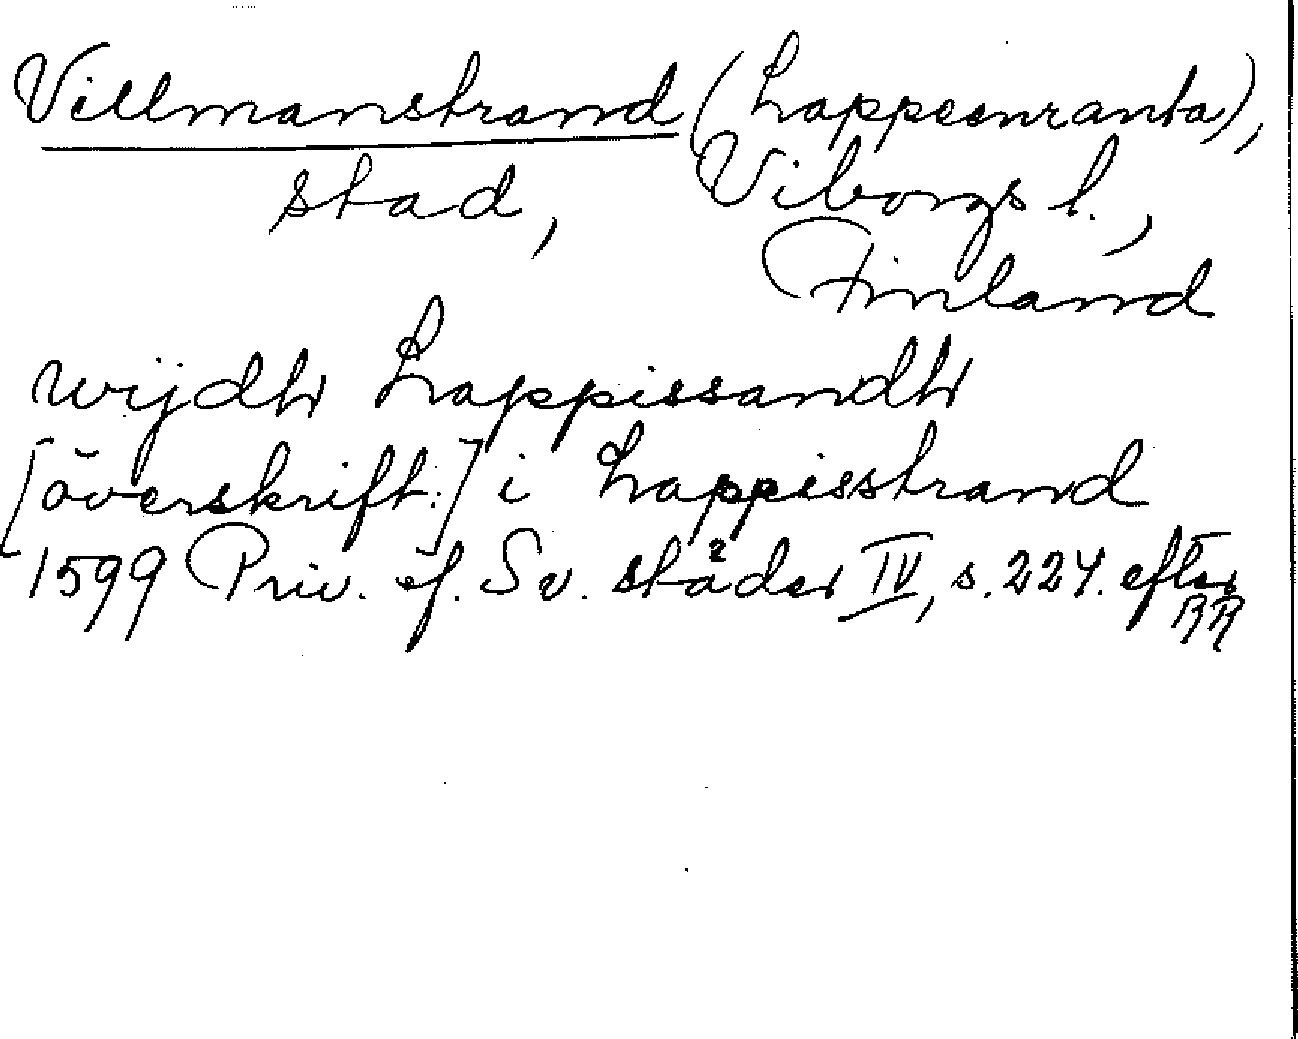 Villmanstrand (Lappeenranta),
stad, Viborgs l.,
Finland
wijdh Lappissandh
[överskrift:] i Lappisstrand
1599 Priv. ef. Sv. städer IV, s. 224. efter
RR